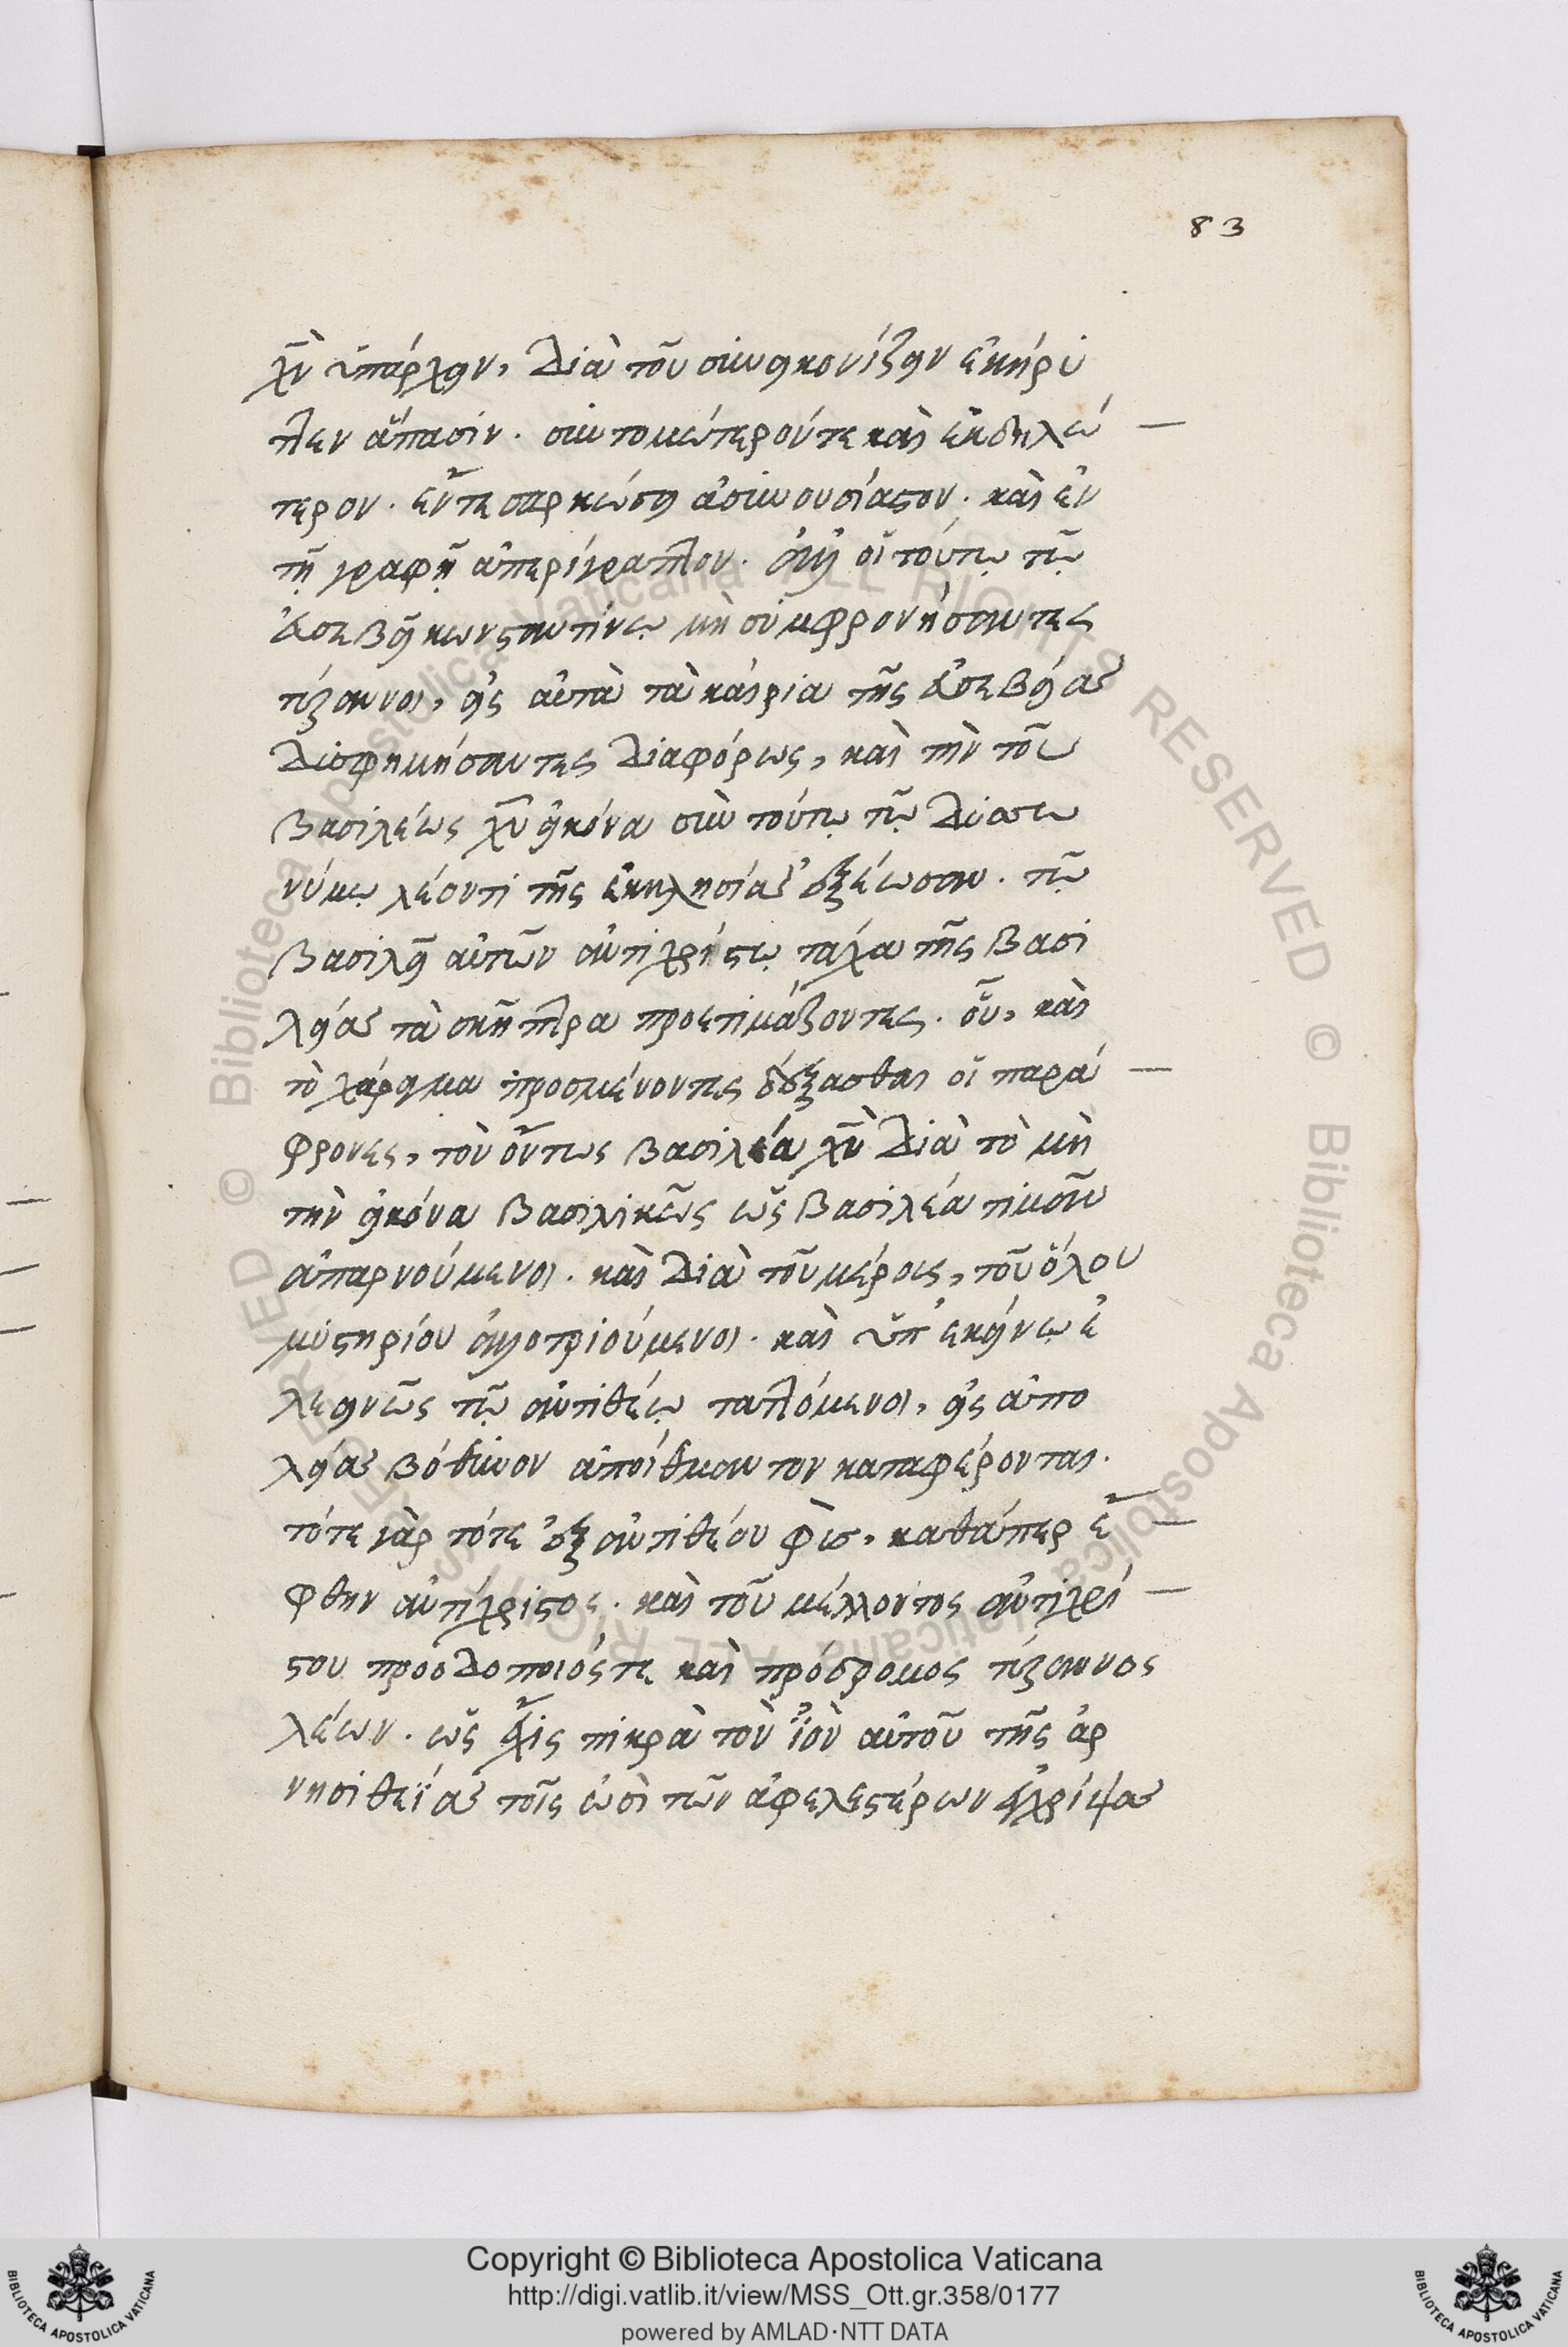 83
χ̅ν̅ ὑπάρχειν, διὰ τοῦ συνεικονίζειν ἐκήρυ
τ̅τεν ἅπασιν. συντομώτερόν τε καὶ ἐκδηλώ
τερον. ἔν τε σαρκώσει ἀσυνουσίαστον. καὶ ἐν
τῇ γραφῇ ἀπερίγραπτον. ἀλλ' οἱ τούτῳ τῷ
εὐσεβεῖ κωνσταντίνῳ μὴ συμφρονήσαντες
τύραννοι, εἰς αὐτὰ τὰ καίρια τῆς εὐσεβείας
δυσφημήσαντες διαφόρως, καὶ τὴν τοῦ
βασιλέως χ̅υ̅ εἰκόνα σὺν τούτῳ τῷ δυσω
νύμῳ λέοντι τῆς ἐκκλησίας ἐξέωσαν. τῷ
βασιλεῖ αὐτῶν ἀντιχρίστῳ τάχα τῆς βασι
λείας τὰ σκῆπτρα προετιμάζοντες. οὗ, καὶ
τὸ χάραγμα προσμένοντες δέξασθαι οἱ παρά
φρονες, τὸν ὄντως βασιλέα χ̅ν̅ διὰ τὸ μὴ
τὴν εἰκόνα βασιλικῶς ὡς βασιλέα τιμᾶν
ἀπαρνούμενοι. καὶ διὰ τοῦ μέρους, τοῦ ὅλου
μυστηρίου ἀλλοτριούμενοι. καὶ ὑπ' ἐκείνῳ ἐ
λεεινῶς τῷ ἀντιθέῳ ταττόμενοι, εἰς ἀπω
λείας βόθυνον ἀποίθμαντον καταφέρονται.
τότε γὰρ τότε ἐξ ἀντιθέου φύς, καθάπερ ἔ
φθην ἀντίχριστος. καὶ τοῦ μέλλοντος ἀντιχρί
στου προοδοποιός τε καὶ πρόδρομος τύραννος
λέων. ὡς ἔχις πικρὰ τὸν ἰὸν αὐτοῦ τῆς ἀρ
νησιθεΐας τοῖς ὠσὶ τῶν ἀφελεστέρων ἐγχρίψας
Copyright © Biblioteca Apostolica Vaticana
http://digi.vatlib.it/view/MSS_Ott.gr.358/0177
powered by AMLAD·NTT DATA